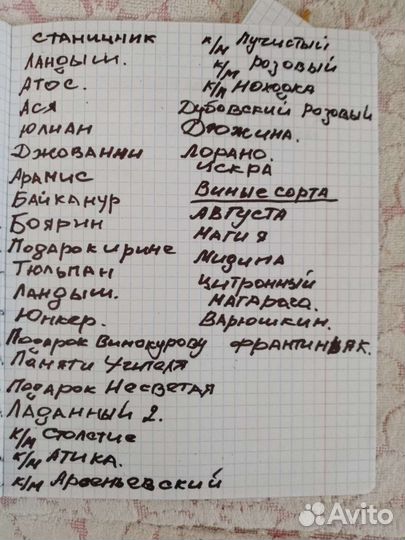 СТАНИЧНИК
ЛАНДЫШ.
АТОС.
АСЯ
ЮЛИАН
ДЖОВАННИ
АРАМИС
БАЙКАНУР
БОЯРИН
ПОДАРОК ИРИНЕ
ТЮЛЬПАН
ЛАНДЫШ.
ЮНКЕР.
ПОДАРОК ВИНОКУРОВУ
ПАМЯТИ УЧИТЕЛЯ
ПОДАРОК НЕСВЕТАЯ
ЛАДАННЫЙ 2.
К/М СТОЛЕТИЕ
К/М АТИКА.
К/М АРСЕНЬЕВСКИЙ
К/М ЛУЧИСТЫЙ
К/М РОЗОВЫЙ
К/М НОХОДКА
ДУБОВСКИЙ РОЗОВЫЙ
ДЮЖИНА.
ЛОРАНО.
ИСКРА
ВИНЫЕ СОРТА
АВГУСТА
МАГИЯ
МИДИНА
ЦИТРОННЫЙ
МАГАРАЧА.
ВАРЮШКИН.
ФРАНТИНЬЯК.
Avito